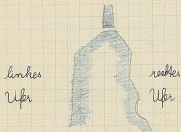 linkes
Ufer
rechtes
Ufer